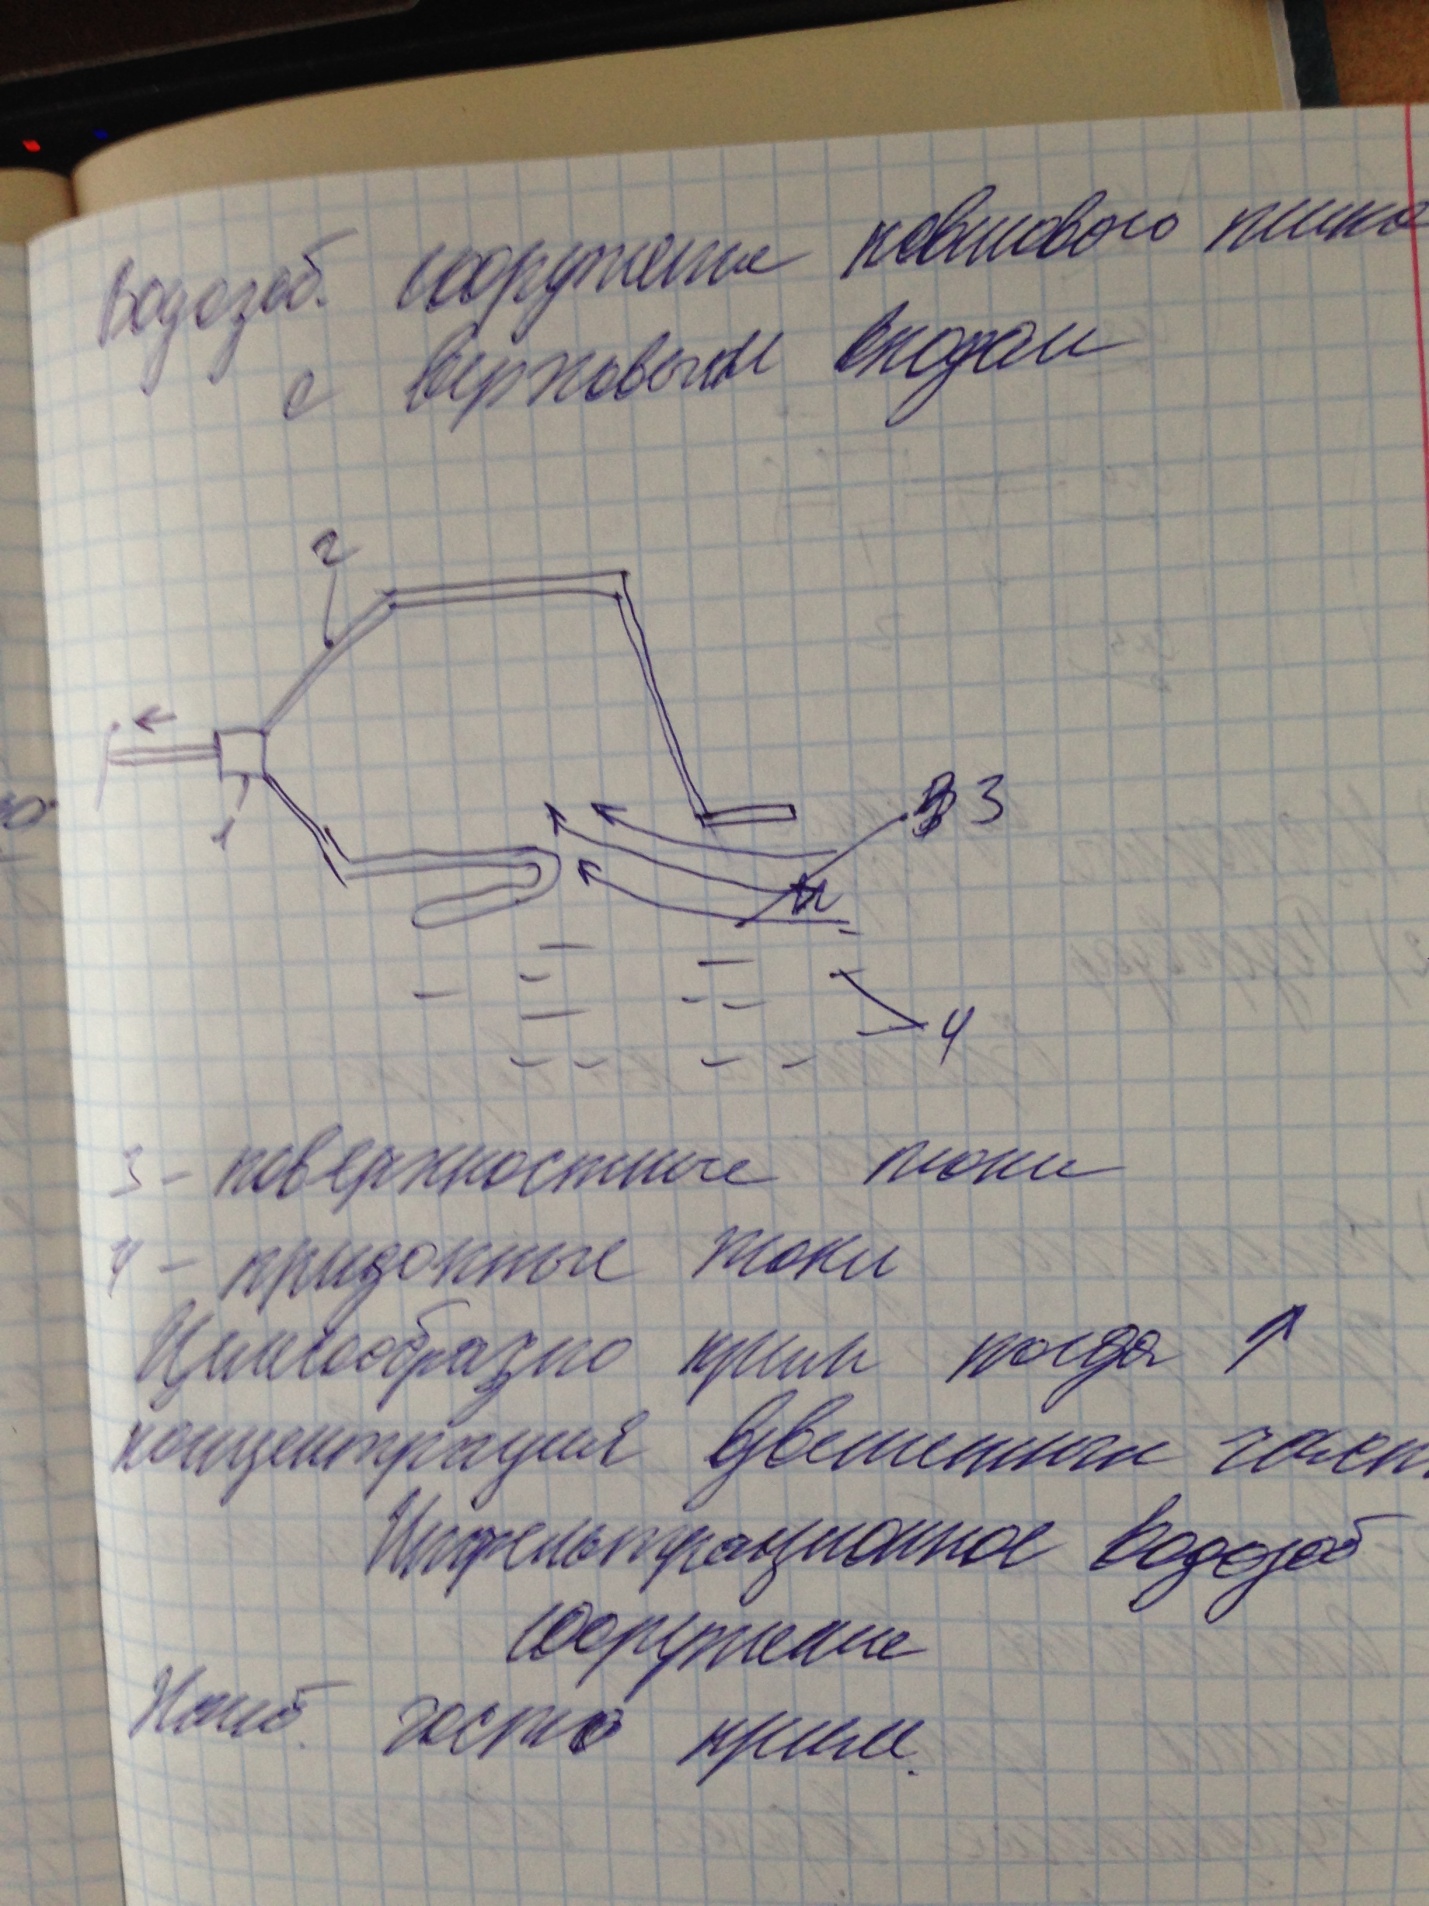 Водозаб. сооружение ковшового типа
с верховым входом
2
1
3
4
3 - поверхностные токи
4 - придонные токи
Целесообразно прим когда ↑
концентрация взвешенных част
Инфильтрационное водозаб
сооружение
Наиб. часто прим.